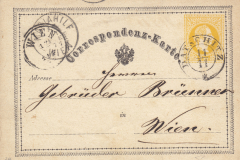 WIEN
Correspondenz-Karte
Adresse
Herren
Gebrüder Brünner
in
Wien.